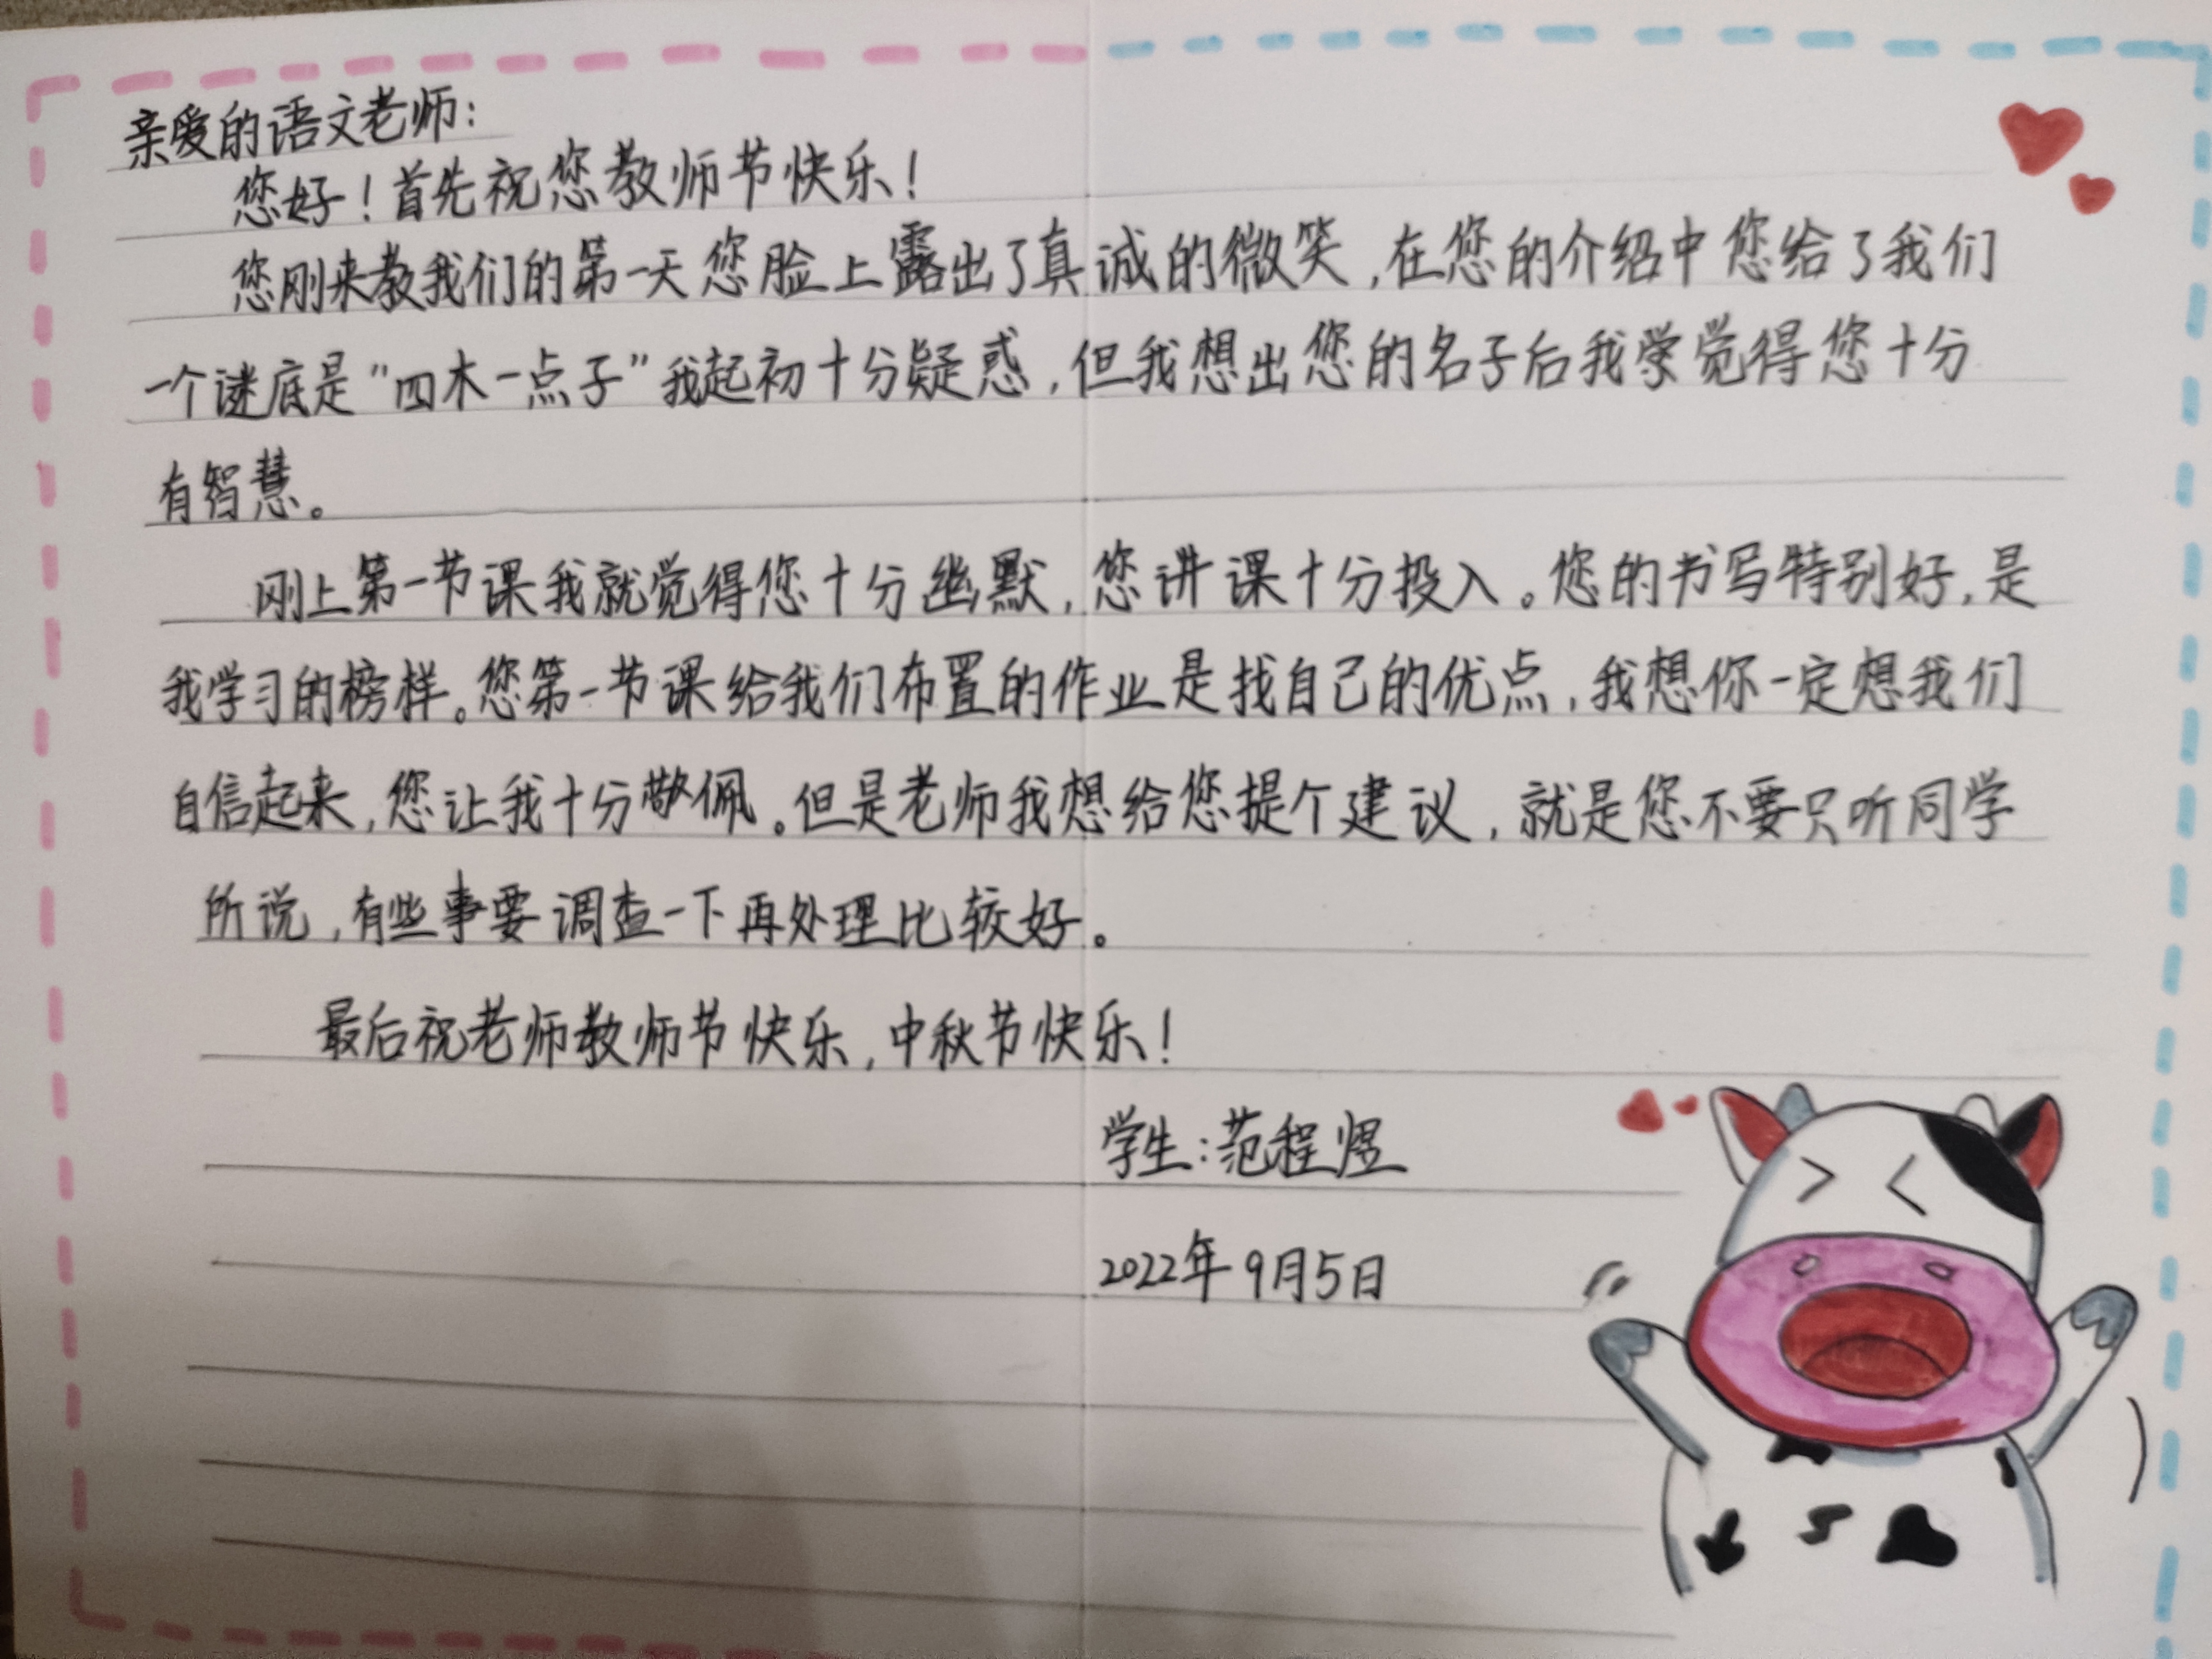 亲爱的语文老师：
您好！首先祝您教师节快乐！
您刚来教我们的第一天您脸上露出了真诚的微笑，在您的介绍中您给了我们
一个谜底是"四木一点子"我起初十分疑惑，但我想出您的名子后我觉得您十分
有智慧。
刚上第一节课我就觉得您十分幽默，您讲课十分投入。您的书写特别好，是
我学习的榜样。您第一节课给我们布置的作业是找自己的优点，我想你一定想我们
自信起来，您让我十分敬佩。但是老师我想给您提个建议，就是您不要只听同学
所说，有些事要调查一下再处理比较好。
最后祝老师教师节快乐，中秋节快乐！
学生：范程煜
2022年9月5日